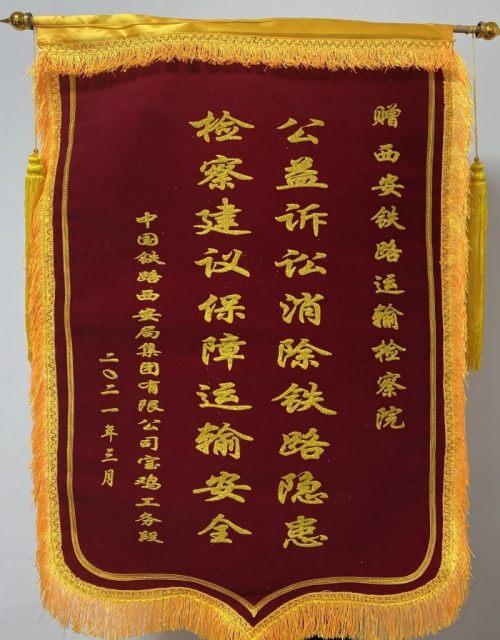 赠西安铁路运输检察院
公益诉讼消除铁路隐患
检察建议保障运输安全
中国铁路西安局集团有限公司宝鸡工务段
二〇二一年三月